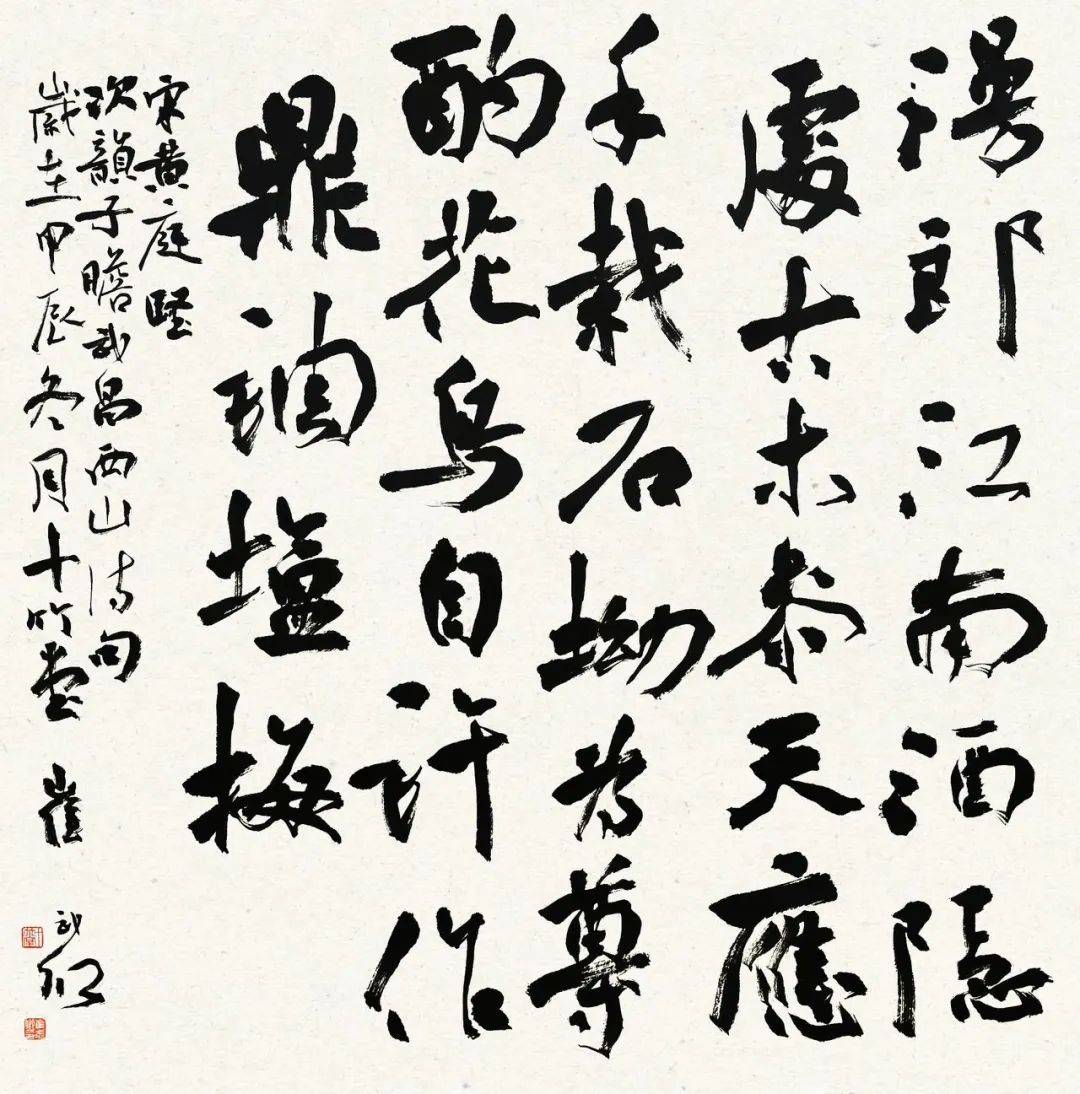 漫郎江南酒隱
處古木参天應
手栽石坳為尊
酌花鳥自許作
鼎調塩梅
宋黄庭堅
次韻子瞻武昌西山诗句
歲在甲辰冬月十竹堂 崔武